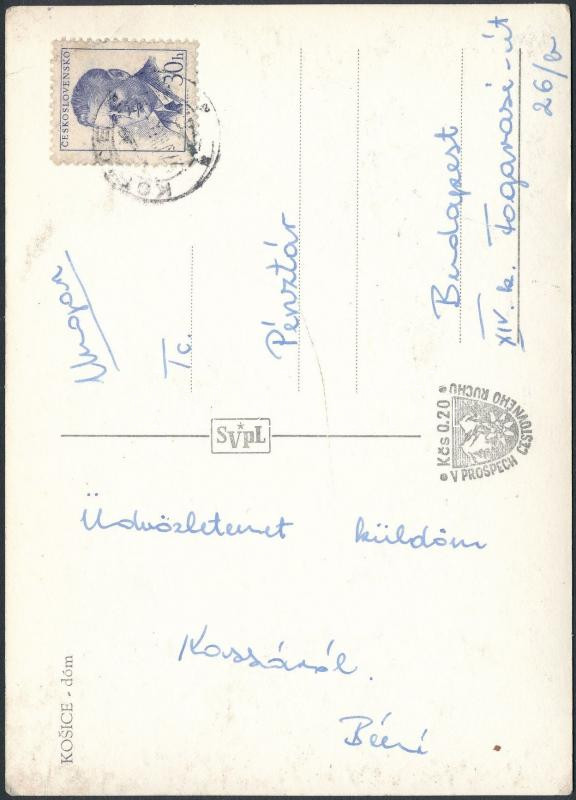 Üdvözletemet küldöm
Kassáról.
KOŠICE - dóm
SVPL
ČESKOSLOVENSKO
30h
KOŠICE
Tc.
Pénztár
Budapest
XIV. k. Fogarasi-út
26/b
• Kčs 0.20 •
V PROSPECH
CESTOVNÉHO RUCHU